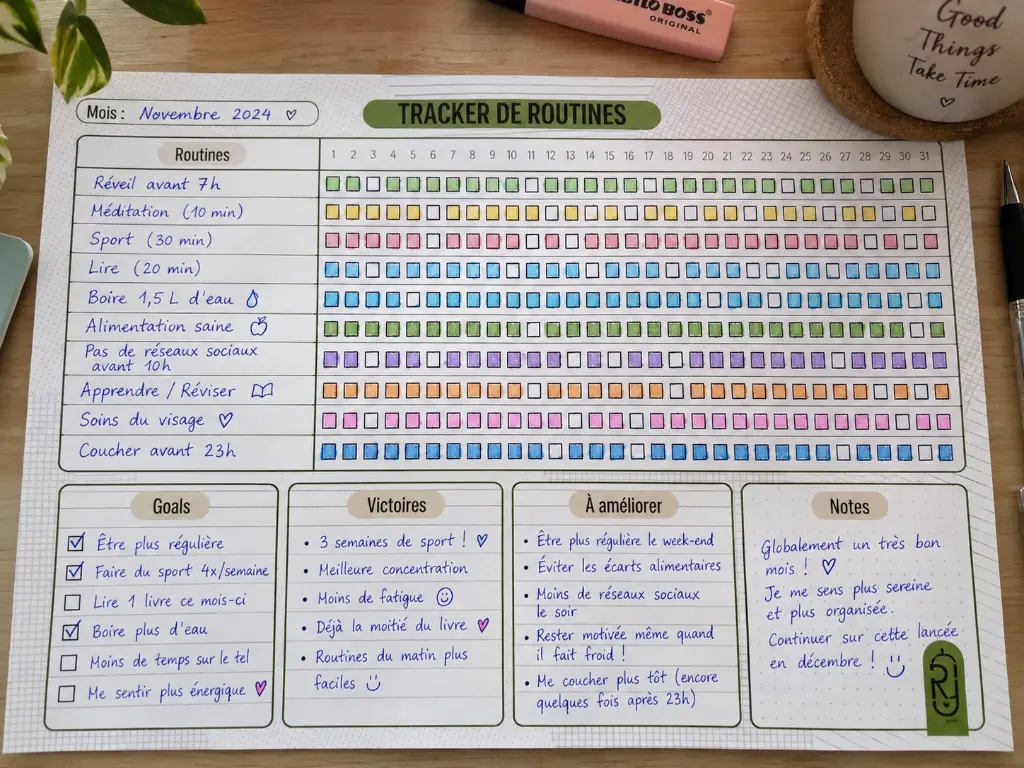 BOSS®
ORIGINAL
Good
Things
Take Time
Mois : Novembre 2024
TRACKER DE ROUTINES
Routines 1 2 3 4 5 6 7 8 9 10 11 12 13 14 15 16 17 18 19 20 21 22 23 24 25 26 27 28 29 30 31
Réveil avant 7h
Méditation (10 min)
Sport (30 min)
Lire (20 min)
Boire 1,5 L d'eau
Alimentation saine
Pas de réseaux sociaux
avant 10h
Apprendre / Réviser
Soins du visage
Coucher avant 23h
Goals
Être plus régulière
Faire du sport 4x/semaine
Lire 1 livre ce mois-ci
Boire plus d'eau
Moins de temps sur le tel
Me sentir plus énergique
Victoires
• 3 semaines de sport !
• Meilleure concentration
• Moins de fatigue
• Déjà la moitié du livre
• Routines du matin plus
faciles
À améliorer
• Être plus régulière le week-end
• Éviter les écarts alimentaires
• Moins de réseaux sociaux
le soir
• Rester motivée même quand
il fait froid !
• Me coucher plus tôt (encore
quelques fois après 23h)
Notes
Globalement un très bon
mois !
Je me sens plus sereine
et plus organisée.
Continuer sur cette lancée
en décembre !